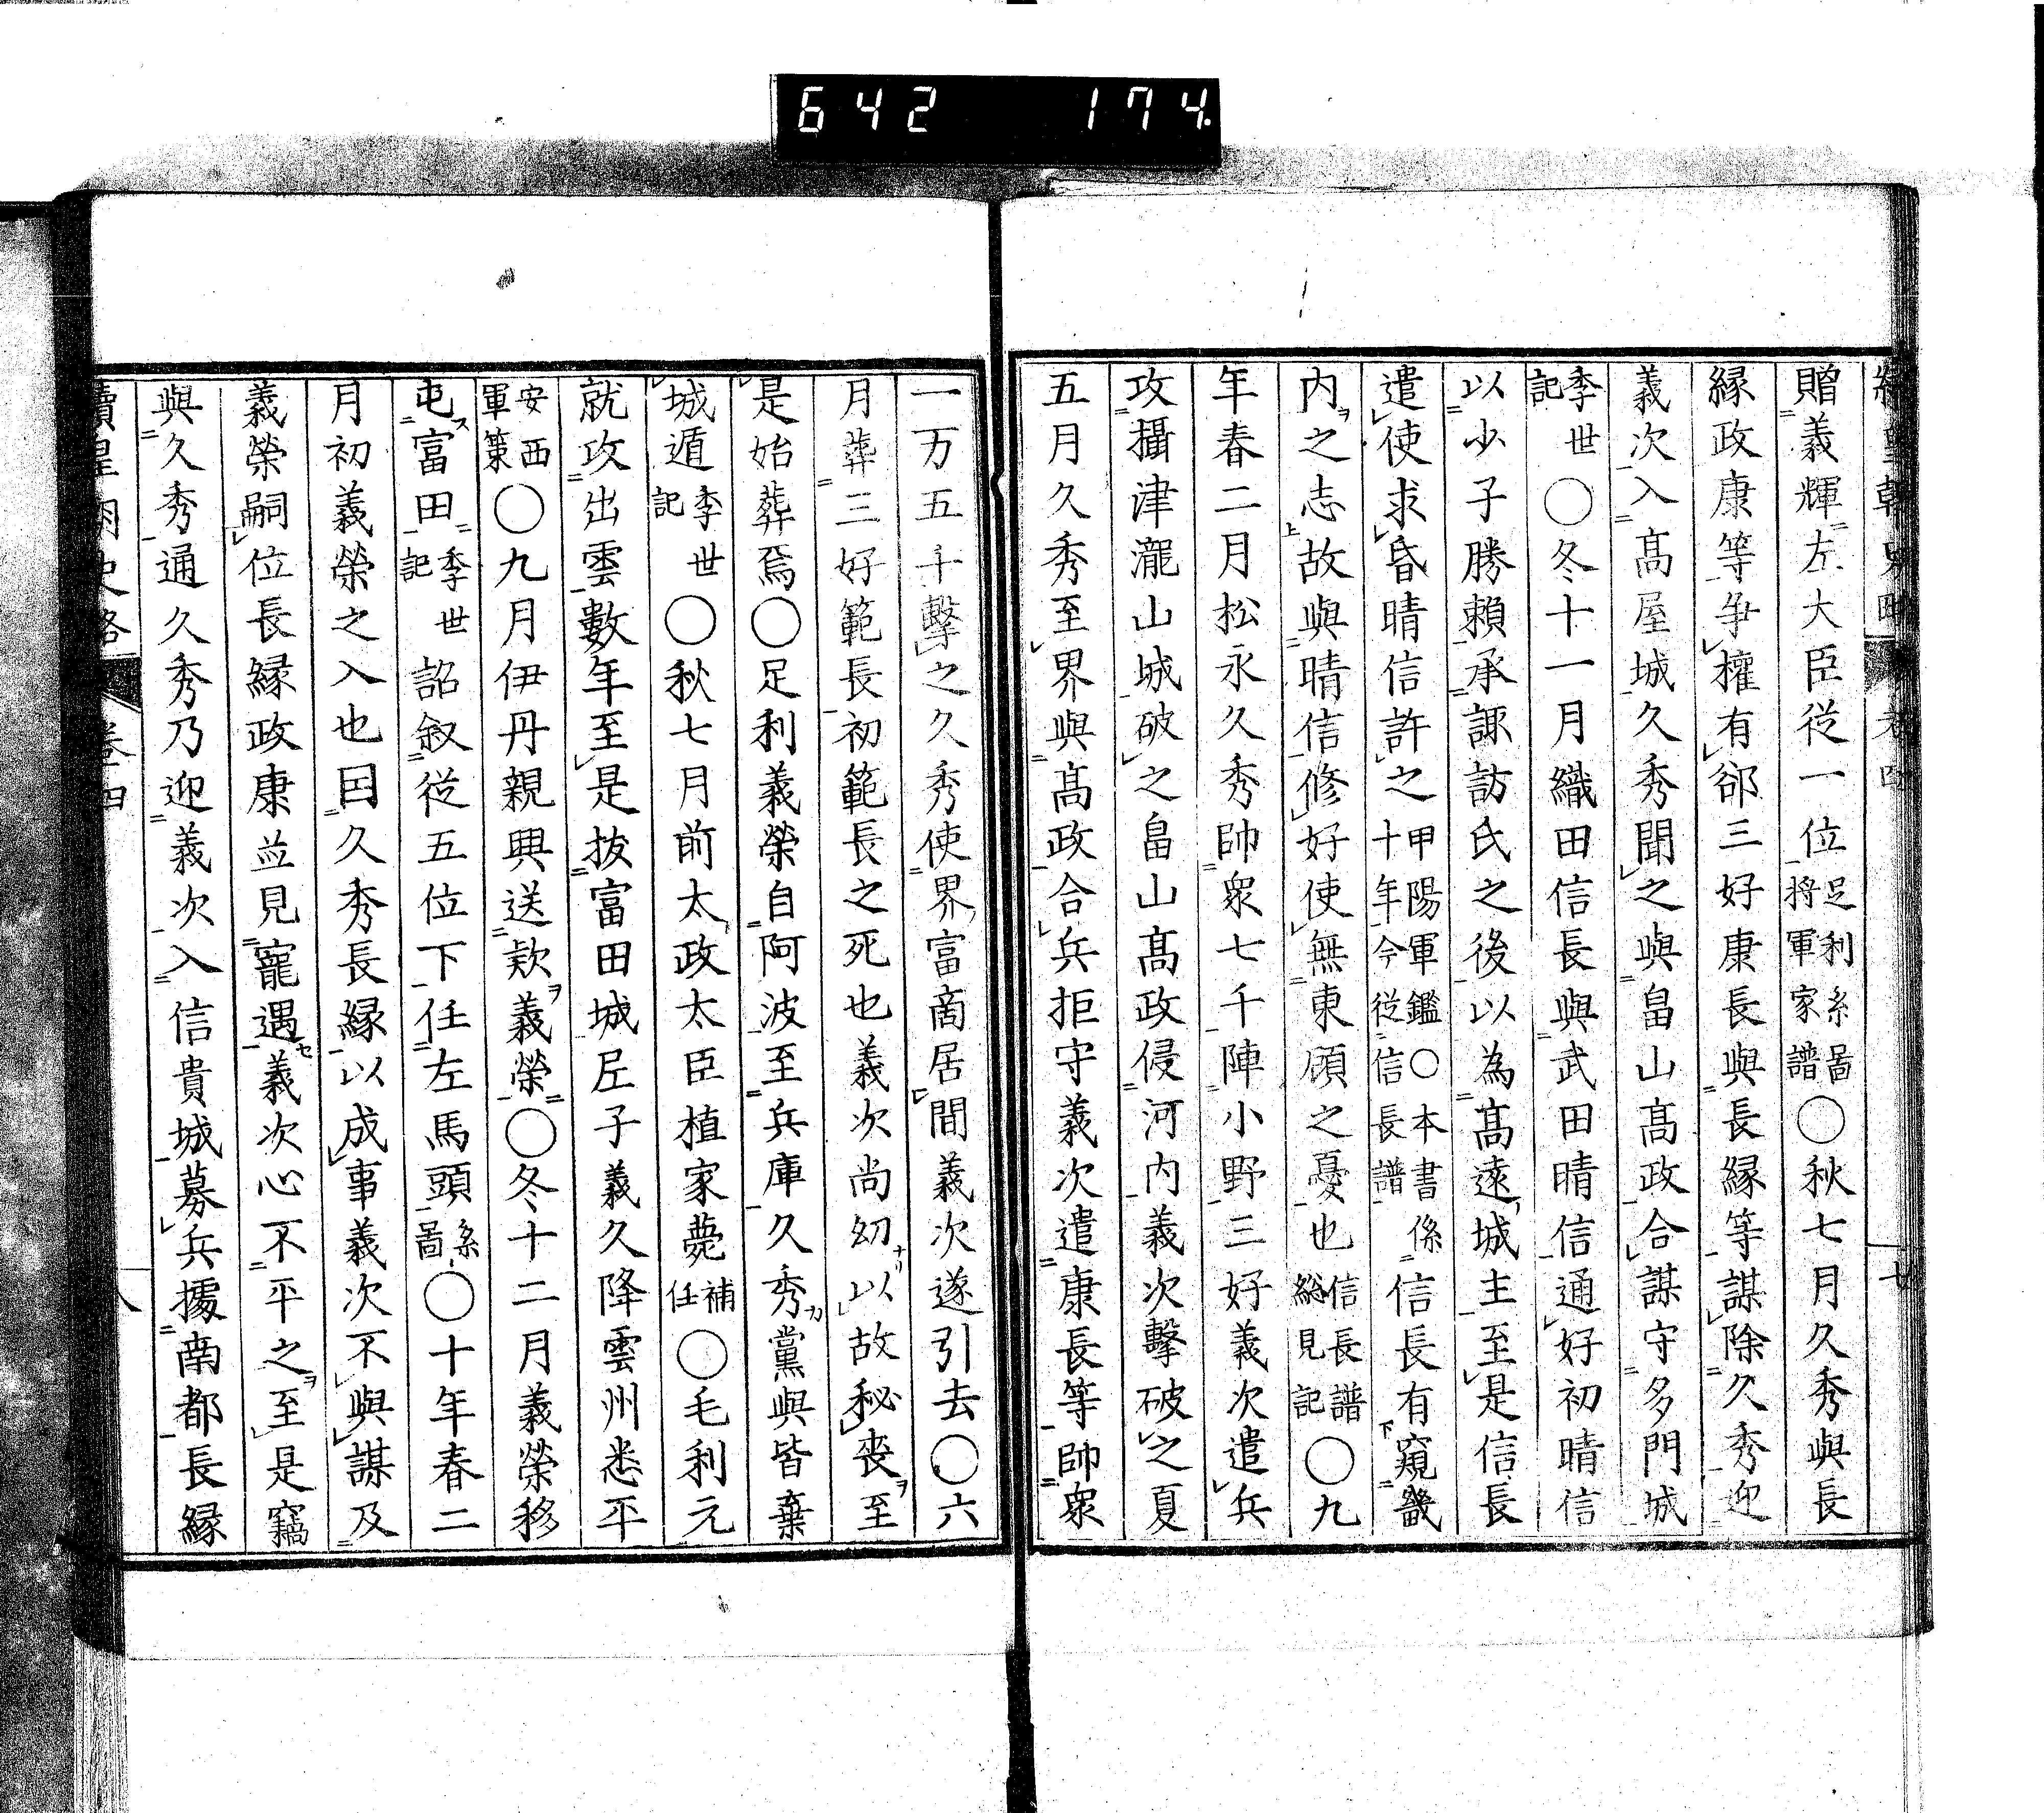 642 174
續皇朝史略 卷四 七
贈義輝左大臣從一位足利系啚將軍家譜〇秋七月久秀與長
縁政康等爭權有郤三好康長與長縁等謀除久秀迎
義次入髙屋城久秀聞之與畠山髙政合謀守多門城
季世記〇冬十一月織田信長與武田晴信通好初晴信
以少子勝頼承諏訪氏之後以為髙遠城主至是信長
遣使求昏晴信許之甲陽軍鑑〇本書係十年今從信長譜信長有窺畿
内之志故與晴信修好使無東顧之憂也信長譜総見記〇九
年春二月松永久秀帥衆七千陣小野三好義次遣兵
攻攝津瀧山城破之畠山髙政侵河内義次擊破之夏
五月久秀至界與髙政合兵拒守義次遣康長等帥衆
一万五千擊之久秀使界富商居間義次遂引去〇六
月葬三好範長初範長之死也義次尚幼以故秘喪至
是始葬焉〇足利義榮自阿波至兵庫久秀黨與皆棄
城遁季世記〇秋七月前太政太臣植家薨補任〇毛利元
就攻出雲數年至是拔富田城尼子義久降雲州悉平
安西軍策〇九月伊丹親興送欵義榮〇冬十二月義榮移
屯富田季世記詔叙從五位下任左馬頭系啚〇十年春二
月初義榮之入也因久秀長縁以成事義次不與謀及
義榮嗣位長縁政康並見寵遇義次心不平之至是竊
與久秀通久秀乃迎義次入信貴城募兵據南都長縁
續皇朝史略 卷四 八